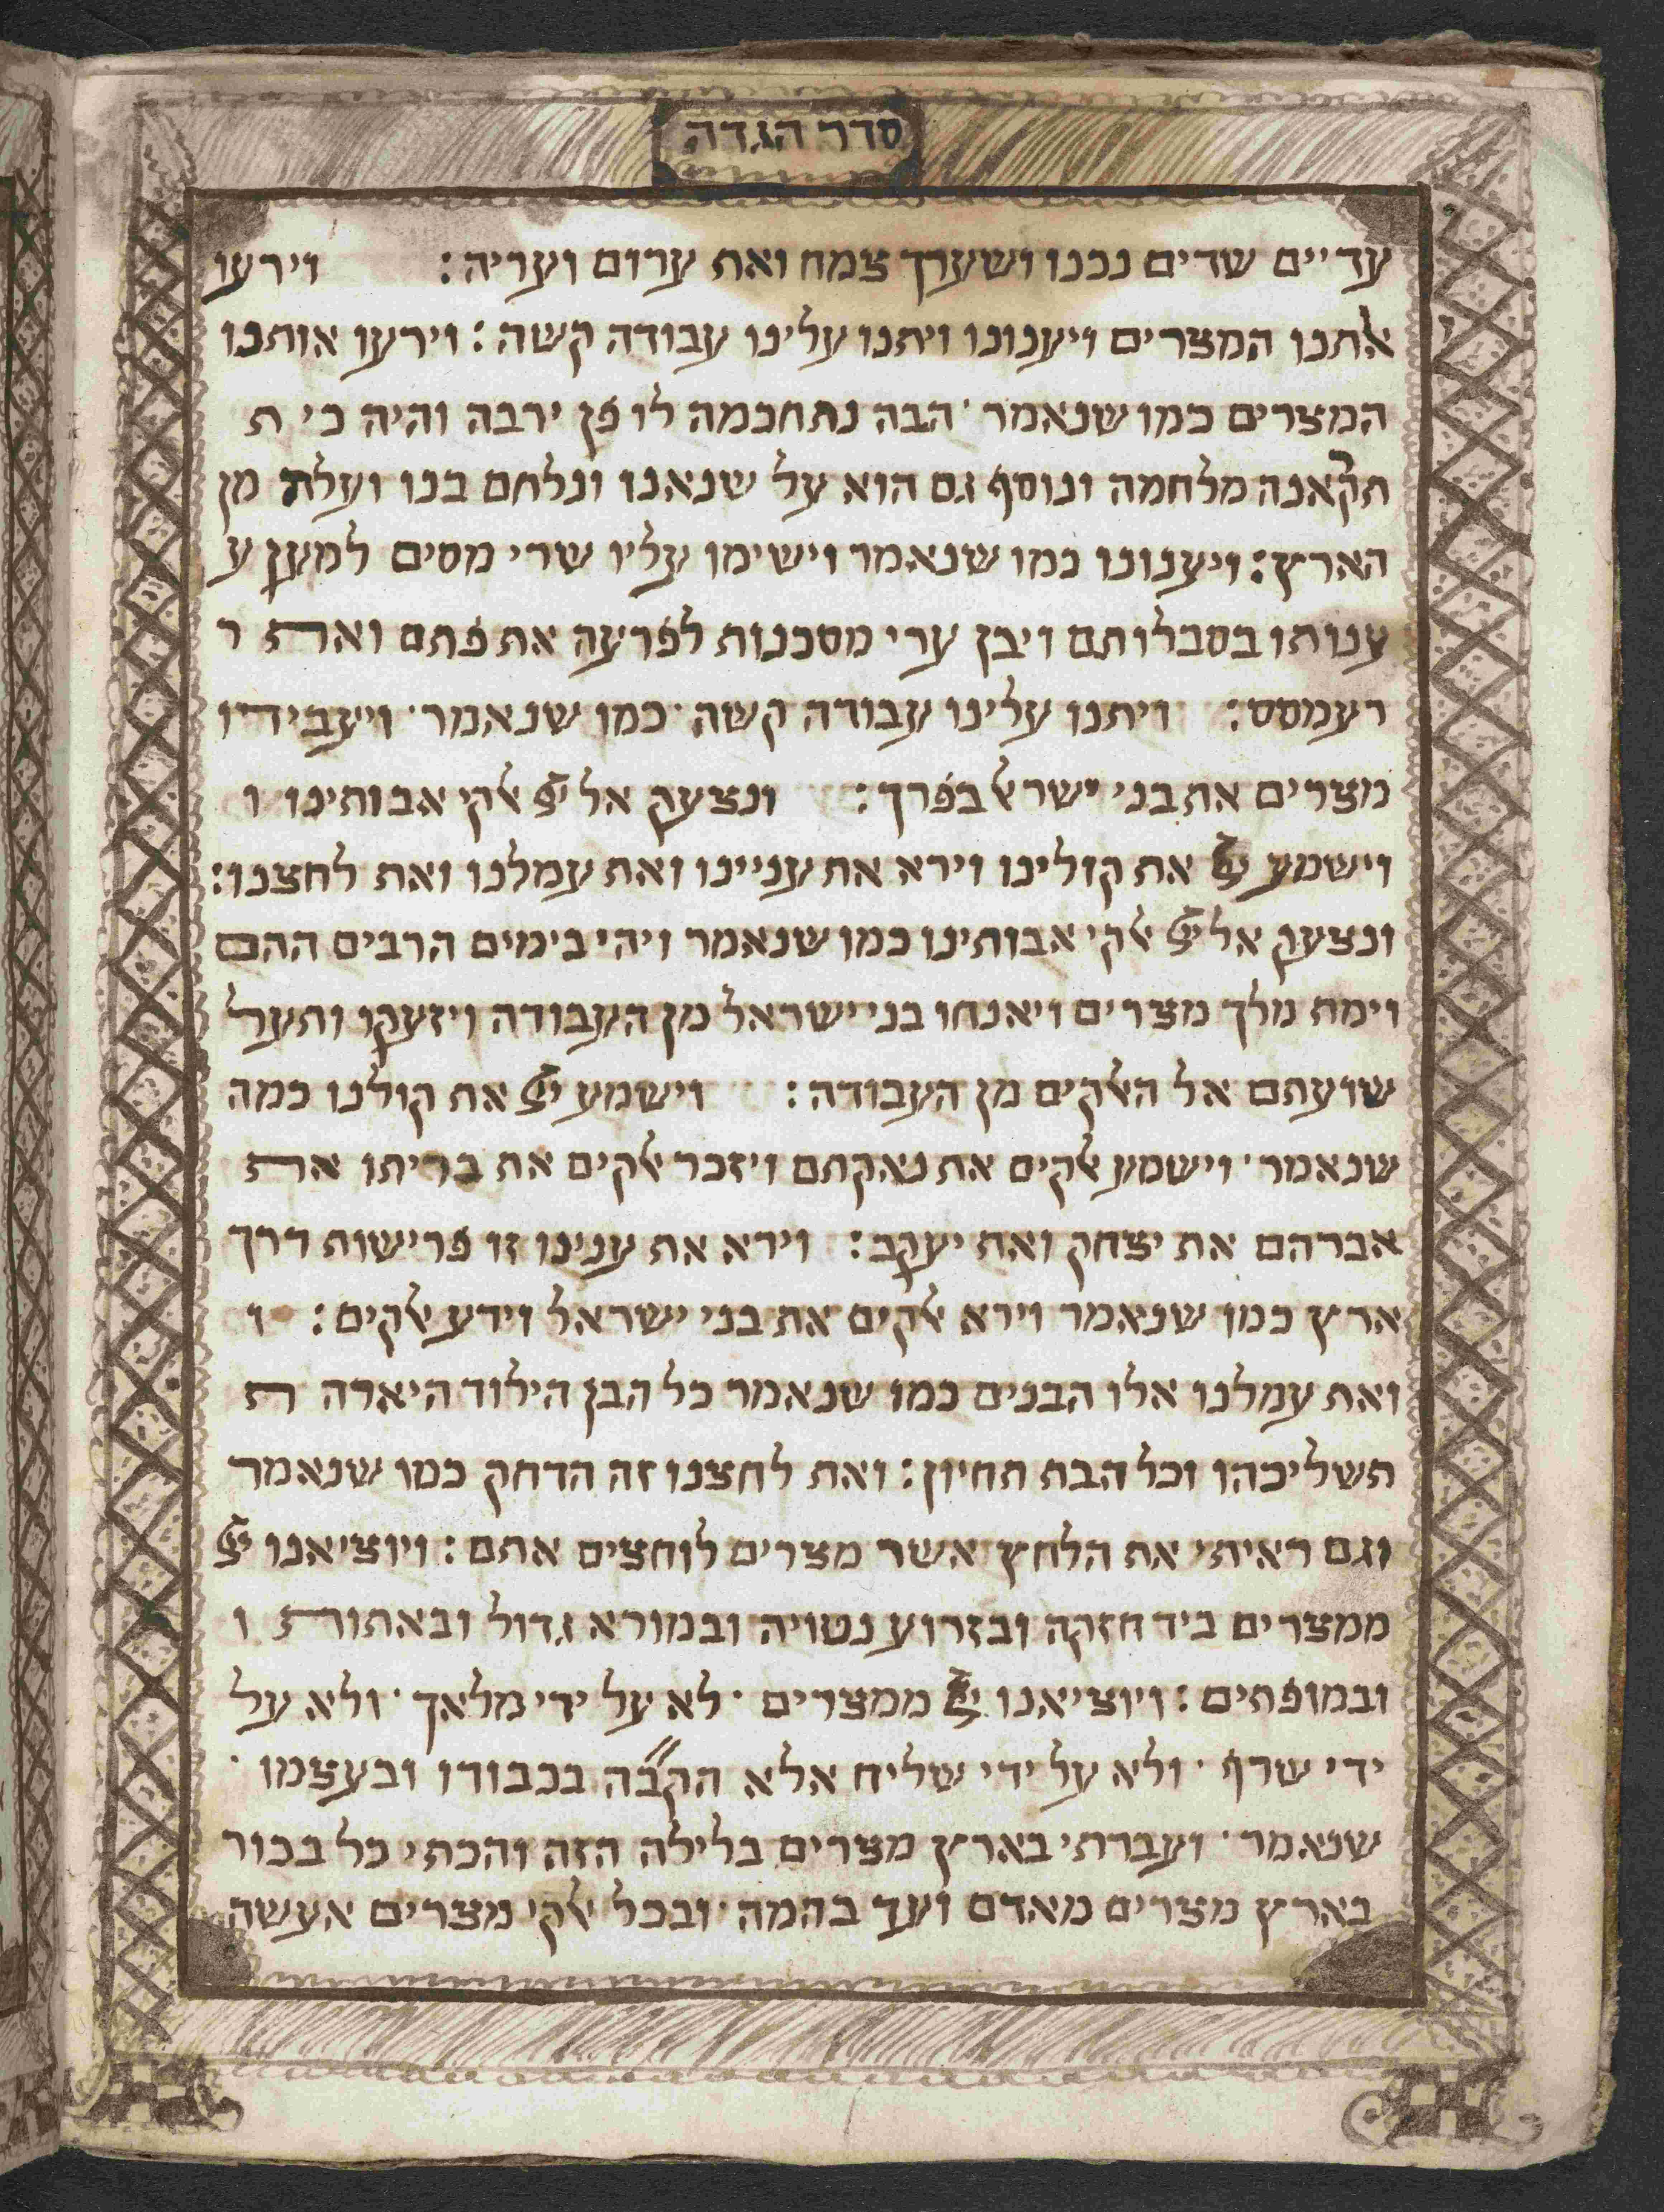 סדר הגדה
עדיים שדים נכנו ושערך צמח ואת ערום ועריה: וירעו
אתנו המצרים ויענונו ויתנו עלינו עבודה קשה: וירעו אותנו
המצרים כמו שנאמר· הבה נתחכמה לו פן ירבה והיה כי ת
תקראנה מלחמה ונוסף גם הוא על שנאנו ונלחם בנו ועלה מן
הארץ: ויענונו כמו שנאמר וישימו עליו שרי מסים למען ע
ענותו בסבלותם ויבן ערי מסכנות לפרעה את פתם ואת ר
רעמסס: ויתנו עלינו עבודה קשה· כמו שנאמר· ויעבידו
מצרים את בני ישראל בפרך: ונצעק אל יי אלקי אבותינו ו
וישמע יי את קולינו וירא את עניינו ואת עמלנו ואת לחצנו:
ונצעק אל יי אלקי אבותינו כמו שנאמר ויהי בימים הרבים ההם
וימת מלך מצרים ויאנחו בני ישראל מן העבודה ויזעקו ותעל
שועתם אל האלקים מן העבודה: וישמע יי את קולנו כמה
שנאמר· וישמע אלקים את נאקתם ויזכר אלקים את בריתו את
אברהם את יצחק ואת יעקב: וירא את ענינו זו פרישות דרך
ארץ כמו שנאמר וירא אלקים את בני ישראל וידע אלקים: ו
ואת עמלנו אלו הבנים כמו שנאמר כל הבן הילוד היארה ת
תשליכהו וכל הבת תחיון: ואת לחצנו זה הדחק כמו שנאמר
וגם ראיתי את הלחץ אשר מצרים לוחצים אתם: ויוציאנו יי
ממצרים ביד חזקה ובזרוע נטויה ובמורא גדול ובאתות ו
ובמופתים: ויוציאנו יי ממצרים· לא על ידי מלאך· ולא על
ידי שרף· ולא על ידי שליח אלא הק״בה בכבודו ובעצמו·
שנאמר· ועברתי בארץ מצרים בלילה הזה והכתי כל בכור
בארץ מצרים מאדם ועד בהמה· ובכל אלקי מצרים אעשה